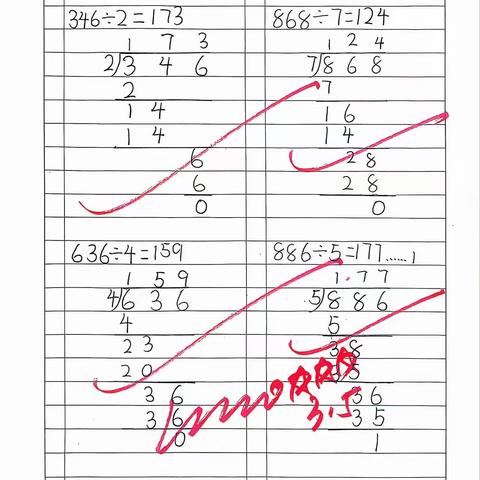 346÷2=173
1 7 3
2)3 4 6
2
1 4
1 4
6
6
0
868÷7=124
1 2 4
7)8 6 8
7
1 6
1 4
2 8
2 8
0
636÷4=159
1 5 9
4)6 3 6
4
2 3
2 0
3 6
3 6
0
886÷5=177......1
1 7 7
5)8 8 6
5
3 8
3 5
3 6
3 5
1
3.5